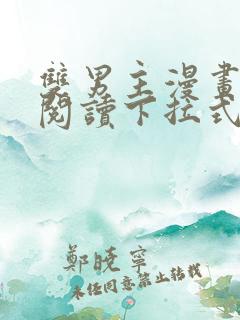 雙男主漫畫
閱讀下拉式
鄭曉寧
未經同意禁止轉載